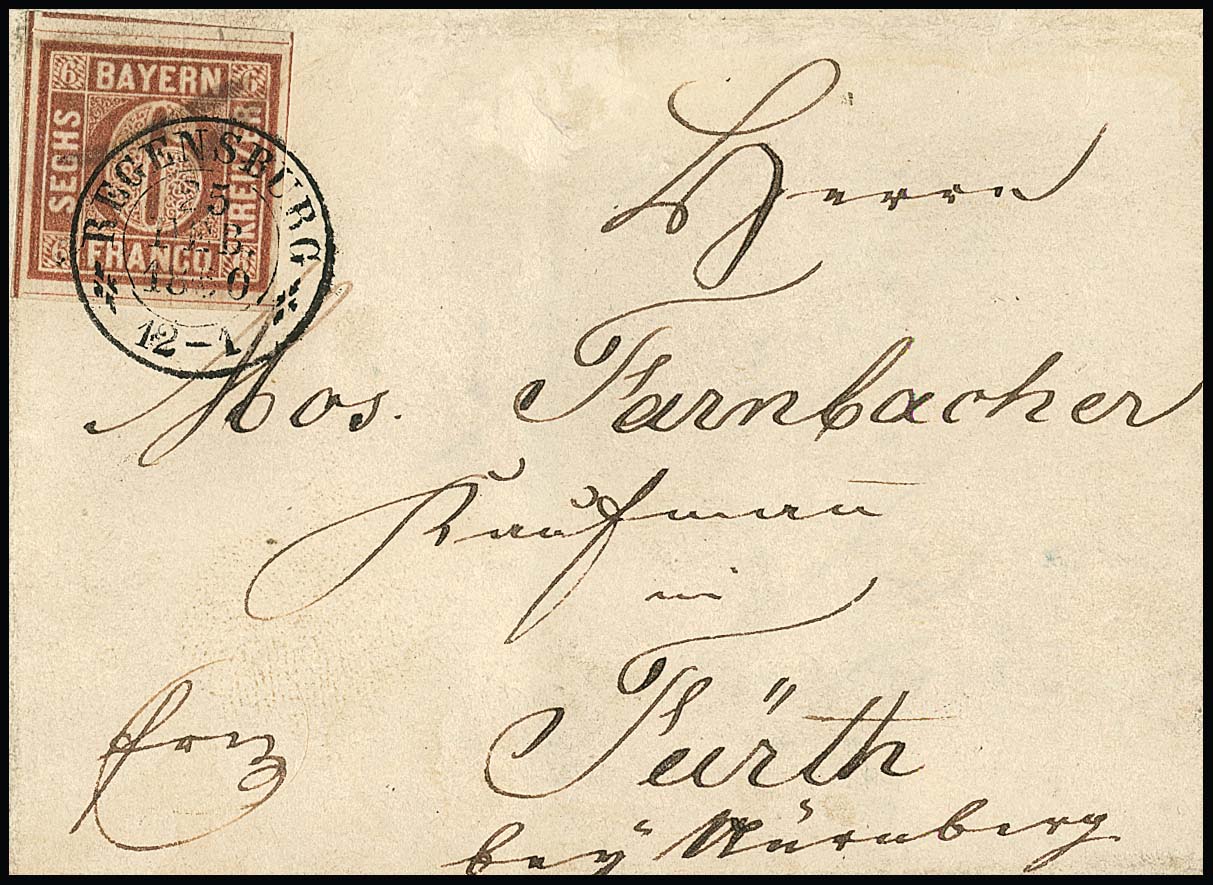 6 BAYERN 6
SECHS
KREUZER
6 FRANCO
REGENSBURG
5
FEB.
12-1
Herrn
Mos. Farnbacher
Kaufmañ
in
Fürth
bey Nürnberg
frco